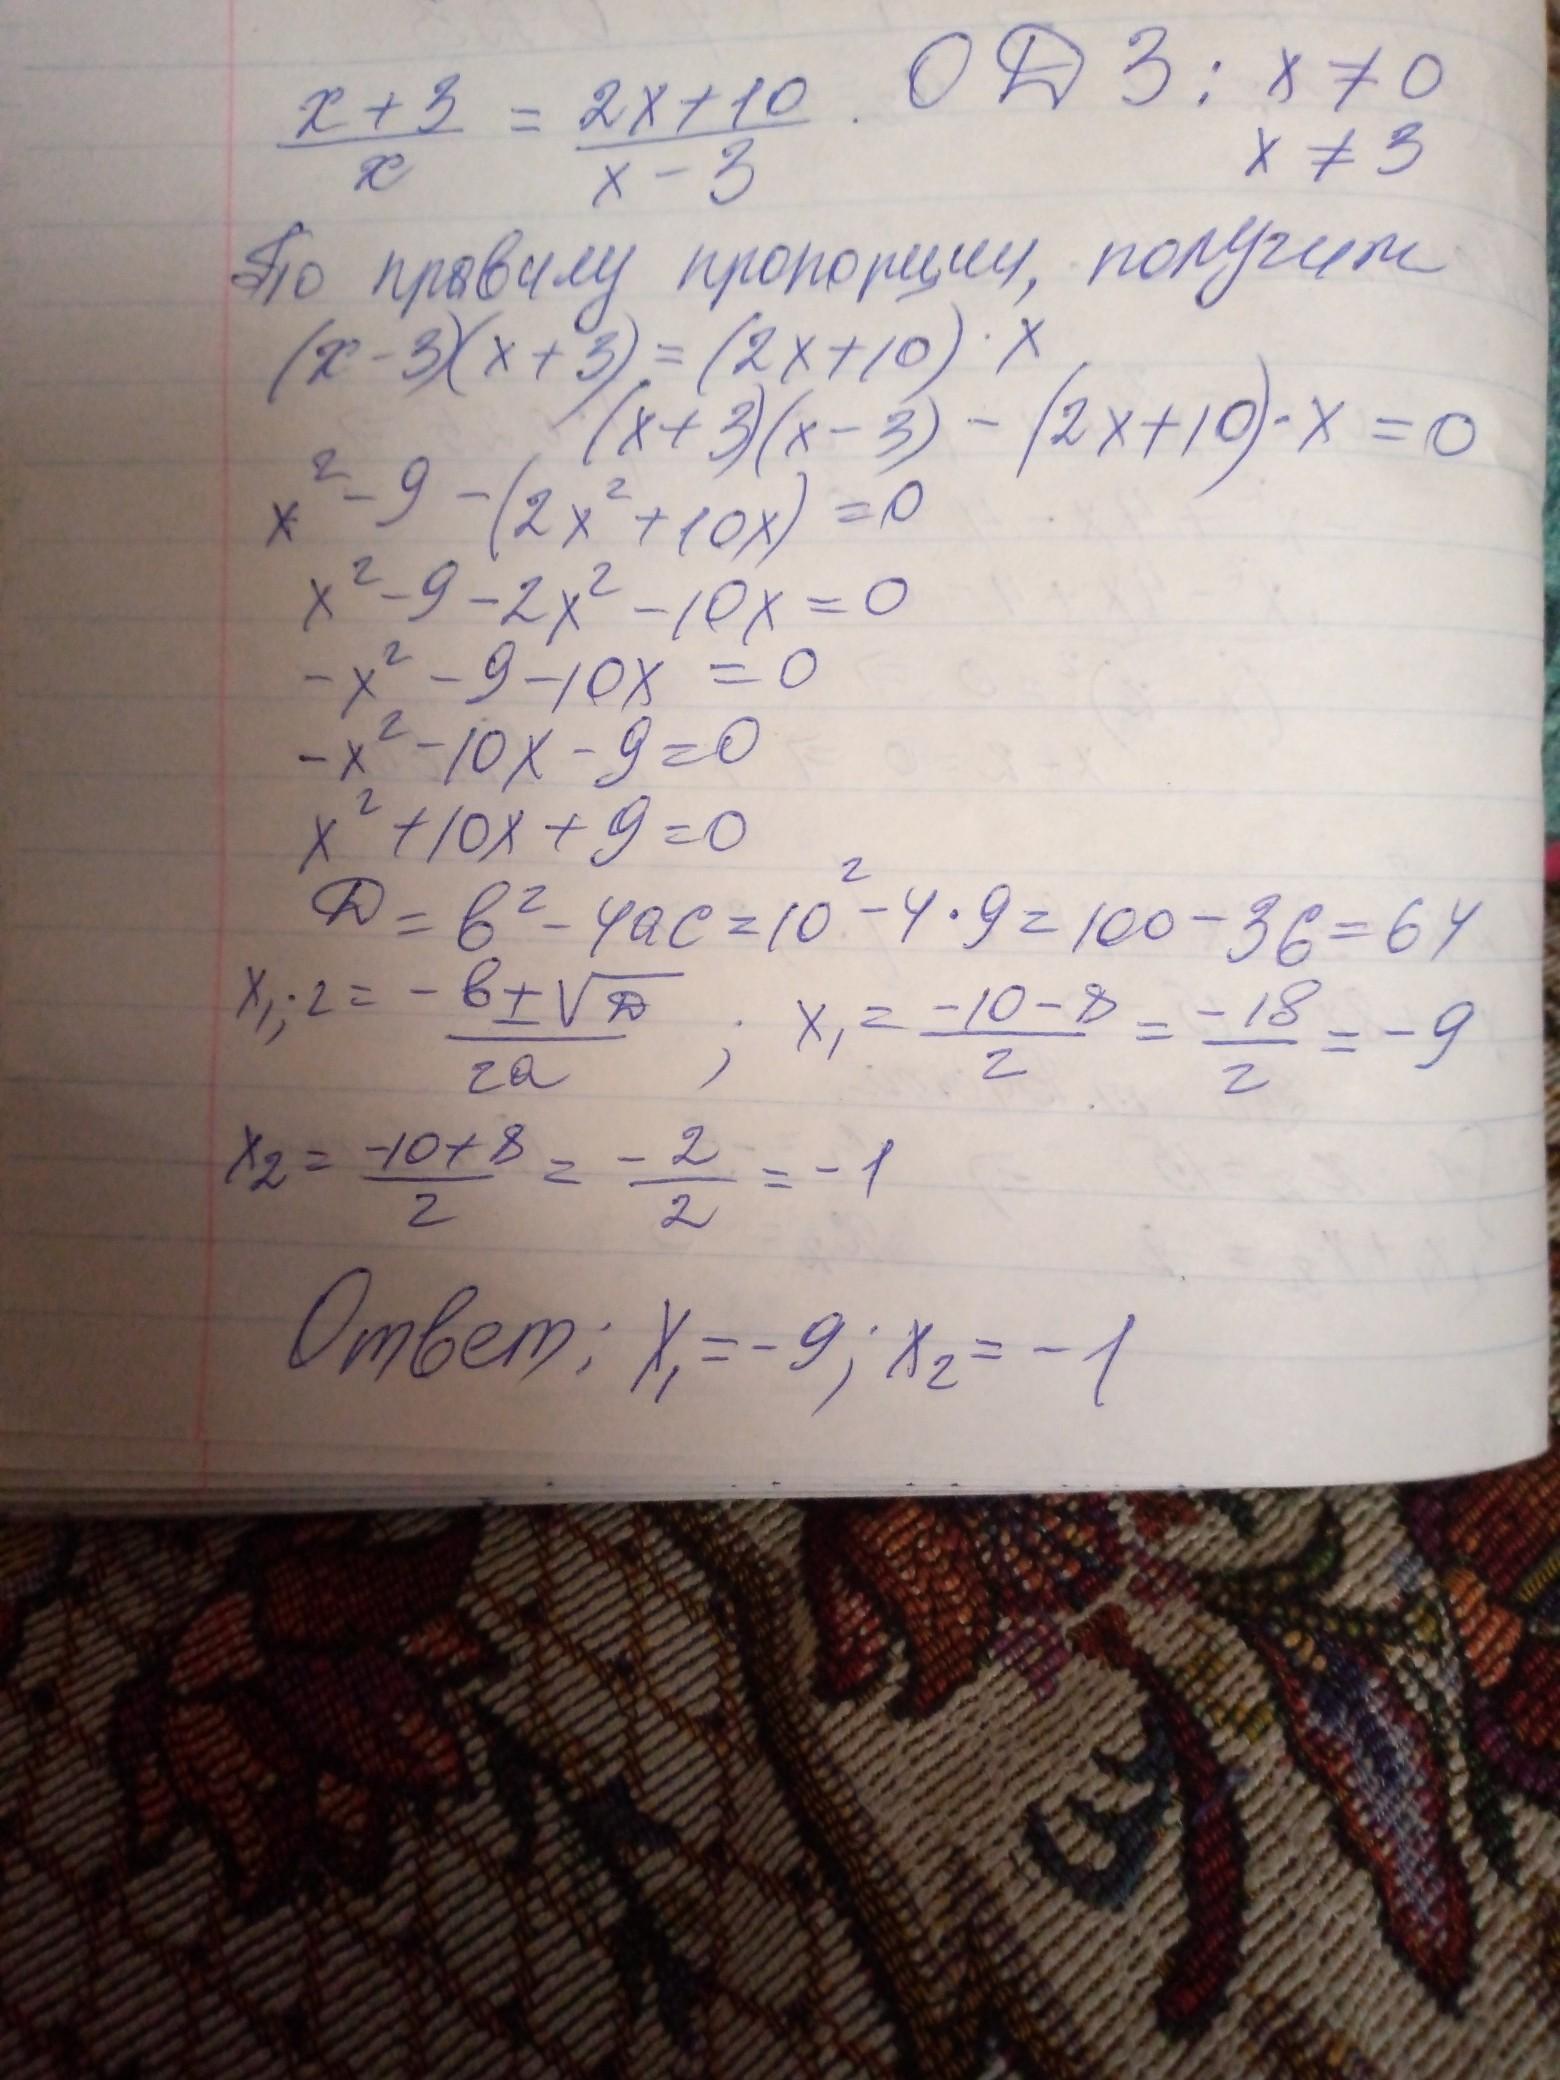 x + 3 / x = 2x + 10 / x - 3 . ОДЗ : x ≠ 0
x ≠ 3
По правилу пропорции, получим
(x - 3)(x + 3) = (2x + 10) · x
(x + 3)(x - 3) - (2x + 10) · x = 0
x² - 9 - (2x² + 10x) = 0
x² - 9 - 2x² - 10x = 0
-x² - 9 - 10x = 0
-x² - 10x - 9 = 0
x² + 10x + 9 = 0
D = b² - 4ac = 10² - 4 · 9 = 100 - 36 = 64
x₁;₂ = -b ± √D / 2a ; x₁ = -10 - 8 / 2 = -18 / 2 = -9
x₂ = -10 + 8 / 2 = -2 / 2 = -1
Ответ: x₁ = -9; x₂ = -1